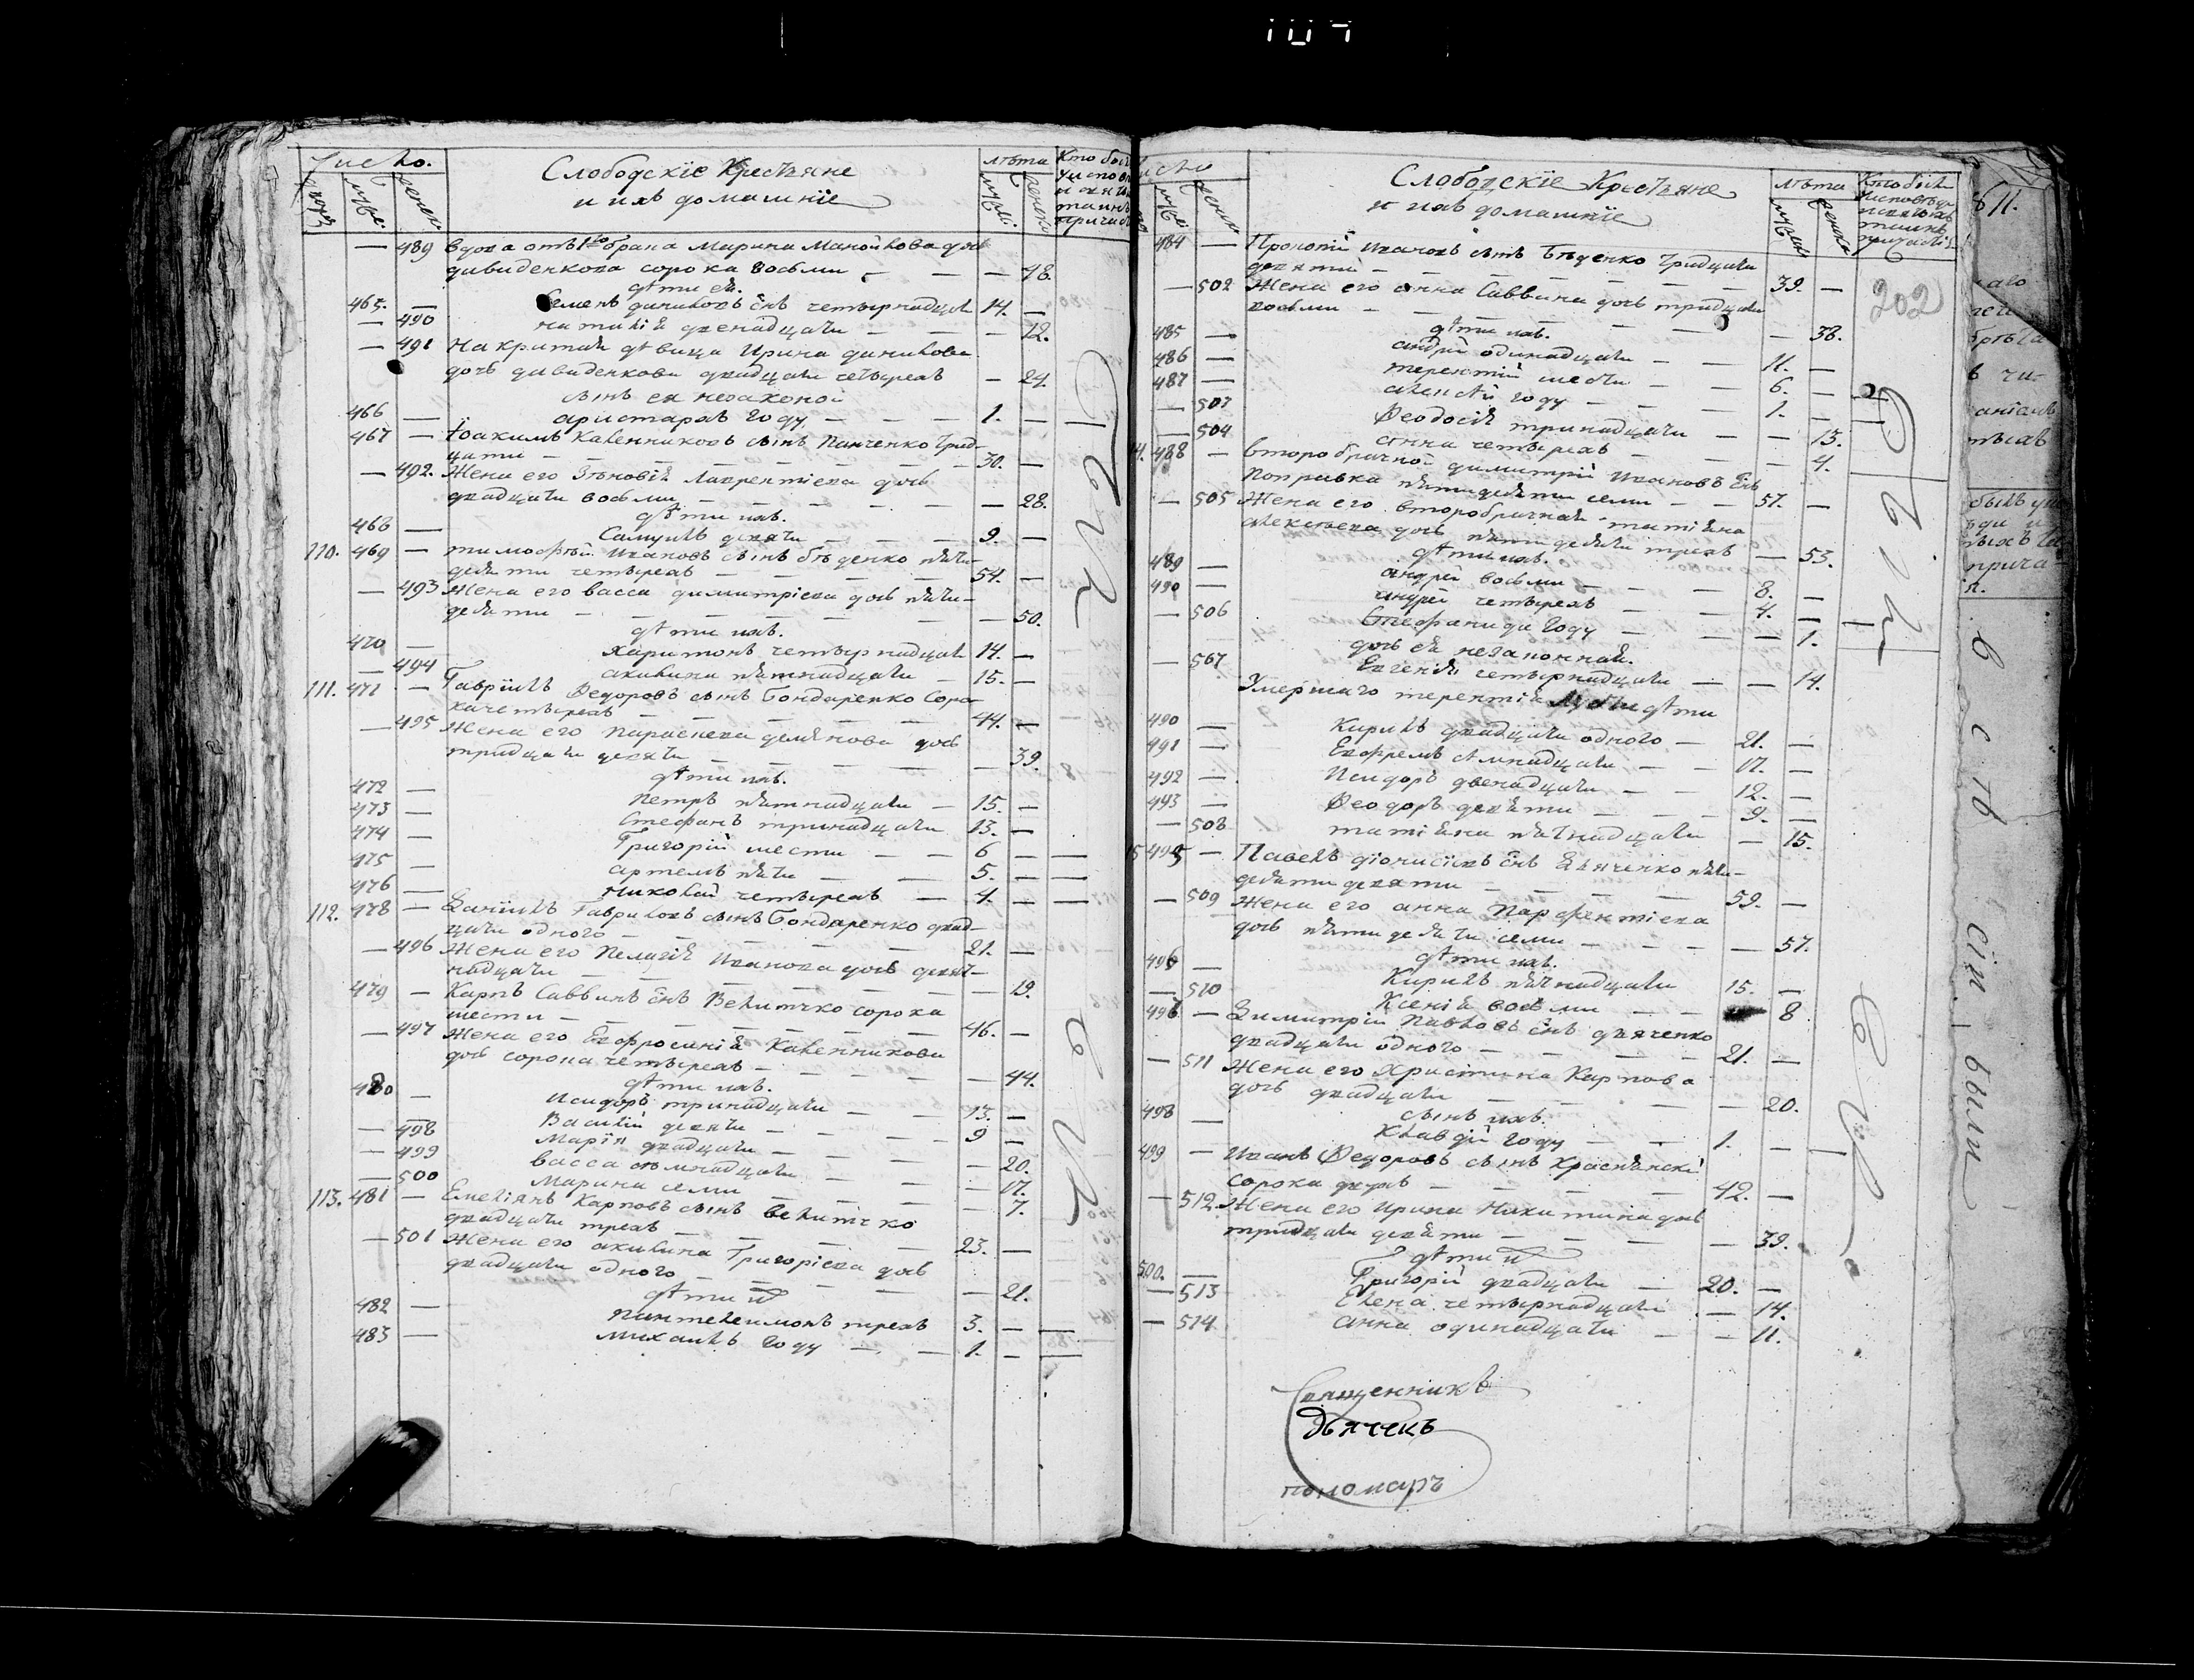 Число.
Слободскіе Крестьяне
и ихъ домашніе
лѣта
— 489 вдова отъ 1го брака Марина Манойлова дочь
дивиденкова сорока восьми — — — 48.
дѣти ея.
465. — Семенъ даниловъ снъ четырнадцати 14. —
— 490 наталія двенадцати — — — 12.
— 491 накритая дѣвица Ирина данилова
дочь дивиденкова двадцати четырехъ — 24.
сынъ ея незаконой
466 — аристархъ году — — — 1. —
467 — Іоакимъ Каленниковъ сынъ Панченко трид-
цати — — — — 30. —
— 492. Жена его Зѣновія Лаврентіева дочь
двадцати восьми — — — — 28.
дѣти ихъ.
468 — Самуилъ девяти — — — 9. —
110. 469 — тимофѣй Ивановъ сынъ бѣденко пяти-
десяти четырехъ — — — 54. —
— 493 Жена его васса димитріева дочь пяти-
десяти — — — — 50.
дѣти ихъ.
470 — харитонъ четырнадцати 14. —
— 494 акилина пятнадцати — 15. —
111. 471 — Гавріилъ Федоровъ сынъ Бондаренко соро-
качетырехъ — — — 44. —
— 495 Жена его параскева демянова дочь
тридцати девяти — — — — 39.
дѣти ихъ.
472 — Петръ пятнадцати — 15. —
473 — Стефанъ тринадцати 13. —
474 — Григорій шести — — 6 — —
475 — артемъ пяти — — 5. — —
476 — николай четырехъ — 4. — —
112. 478 — Даніилъ Гавриловъ сынъ Бондаренко двад-
цати одного — — — — 21. —
— 496 Жена его Пелагія Иванова дочь девят-
надцати — — — — 19.
479 — Карпъ Саввинъ снъ Велитчко сорока
шести — — — — 46. —
— 497 Жена его Евфросинія Каленникова
дочь сорока четырехъ — — — — 44.
дѣти ихъ.
480 — Исидоръ тринадцати — — 13. —
Василій девяти — — — 9 —
— 498 Марія двадцати — — — 20.
— 499 васса семнадцати — — — 17.
— 500 Марина семи — — — 7.
113. 481 — Емеліянъ Карповъ сынъ велитчко
двадцати трехъ — — — 23. —
— 501 Жена его акилина Григоріева дочь
двадцати одного — — — — 21.
дѣти их
482 — Пантелеимонъ трехъ 3. — —
483 — михаилъ году — — 1. — —
Слободскіе Крестьяне
и ихъ домашніе
лѣта
484 — Прокопій Ивановъ сынъ Бѣденко тридцати
девяти — — — — 39. —
— 502 Жена его анна Саввина дочь тридцати
восьми — — — — 38.
дѣти ихъ.
485 — андрій одинадцати — — 11. —
486 — терентій шести — — 6. —
487 — алексѣй году — — 1. —
— 503 Феодосія тринадцати — — 13.
— 504 анна четырехъ — — — 4.
14. 488 — второбрачной димитрій Ивановъ снъ
Поправка пятидесяти семи — — 57. —
— 505 Жена его второбрачная татіяна
алексѣева дочь пятидесяти трехъ — 53.
дѣти ихъ.
489 — андрей восьми — — — 8. —
490 — андрей четырехъ — — 4. —
— 506 Стефанида году — — — 1.
дочь ея незаконная.
— 507 Евгенія четырнадцати — — 14.
Умершаго терентія дѣти
490 — Кирилъ двадцати одного — 21. —
491 — Евфремъ семнадцати — — 17. —
492 — Исидоръ двенадцати — — 12. —
493 — Феодоръ девяти — — — 9. —
— 508 татіяна пятнадцати — 15.
15 495 — Павелъ діонисіевъ снъ Дяченко пяти-
десяти девяти — — — — 59. —
— 509 Жена его анна Парфентіева
дочь пятидесяти семи — — — — 57.
дѣти ихъ.
496 — Кирилъ пятнадцати 15. —
— 510 Ксенія восьми — — 8
496 — Димитрій Павловъ снъ дяченко
двадцати одного — — — — 21. —
— 511 Жена его Христина Карпова
дочь двадцати — — — — 20.
сынъ ихъ.
498 — Клавдій году — — 1. —
499 — Иванъ Федоровъ сынъ Краснянскій
сорока двухъ — — — — 42. —
— 512. Жена его Ирина Никитина дочь
тридцати девяти — — — 39.
дѣти их
500. — Григорій двадцати — 20. —
— 513 Елена четырнадцати — 14.
— 514 анна одинадцати — — 11.
Священникъ
Дьячекъ
пономарь
202